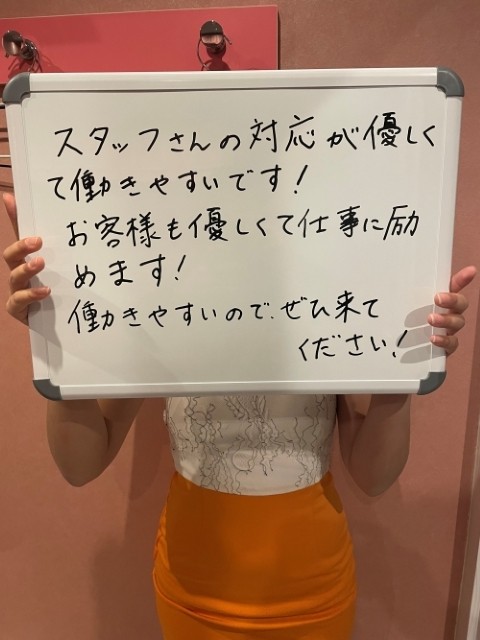 スタッフさんの対応が優しく
て働きやすいです!
お客様も優しくて仕事に励
めます!
働きやすいので、ぜひ来て
ください!